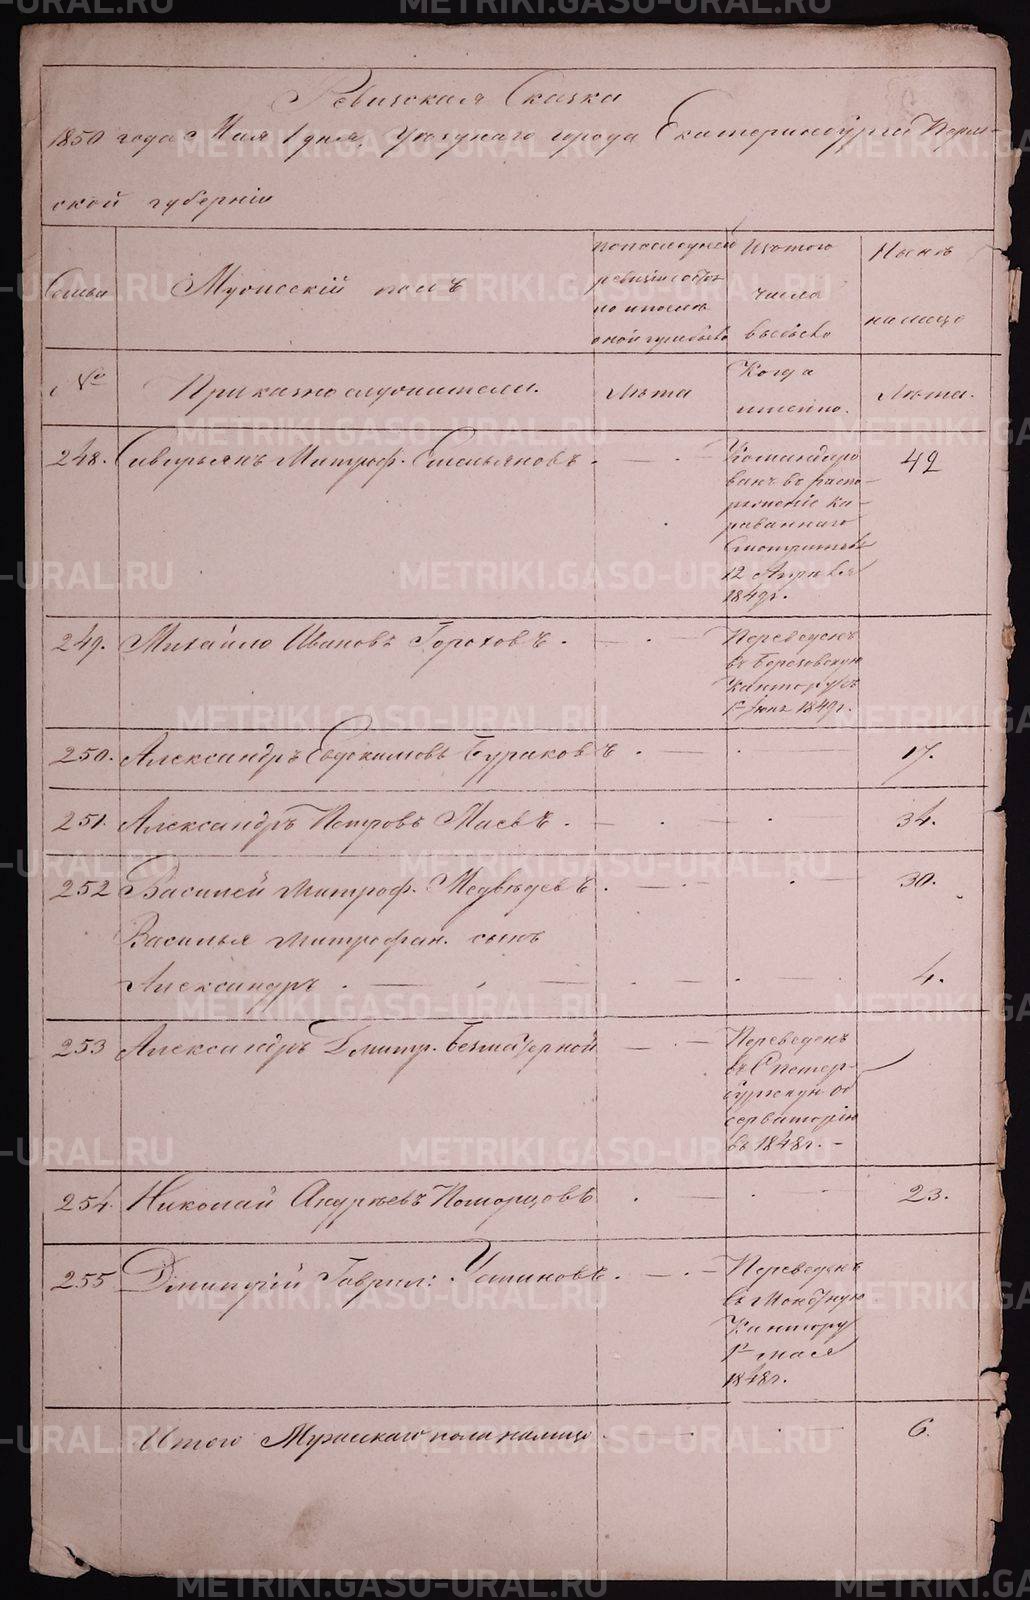 Ревизская Сказка
1850 года Мая 1 дня, уезднаго города Екатеринбурга Перм-
ской губерніи
Семьи
Мужескій полъ
по последней
ревизіи
Изъ того
числа
выбыло
Нынѣ
на лицо
№
Приказно служители.
Лѣта
Когда
именно.
Лѣта.
248. Сиверьянъ Митроф. Емельяновъ.
Командиро
ванъ въ распо-
ряженіе ка-
раваннаго
Смотрителя
12 Апреля
1849г.
42
249. Михайло Ивановъ Гороховъ.
Переведенъ
въ Березовскую
Кантору съ
1го Іюня 1849г.
250. Александръ Евдокимовъ Бураковъ.
17.
251. Александръ Петровъ Маевъ.
34.
252 Василей Митроф. Медведевъ.
30.
Василья Митрофан. сынъ
Александръ
4.
253 Александръ Дмитр. Безматерной
Переведенъ
въ С петер-
бургскую Об
серваторію
въ 1848г.
254. Николай Андреевъ Поморцовъ
23.
255. Дмитрій Гаврил: Устиновъ.
Переведенъ
въ Монетную
Кантору
1го мая
1848г.
Итого Мужескаго пола налицо
6.
METRIKI.GASO-URAL.RU